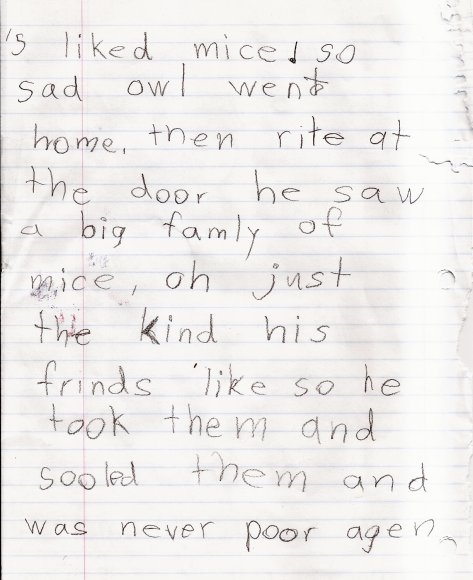 's liked mice! so
sad owl went
home, then rite at
the door he saw
a big famly of
mice, oh just
the kind his
frinds like so he
took them and
sooled them and
was never poor agen.